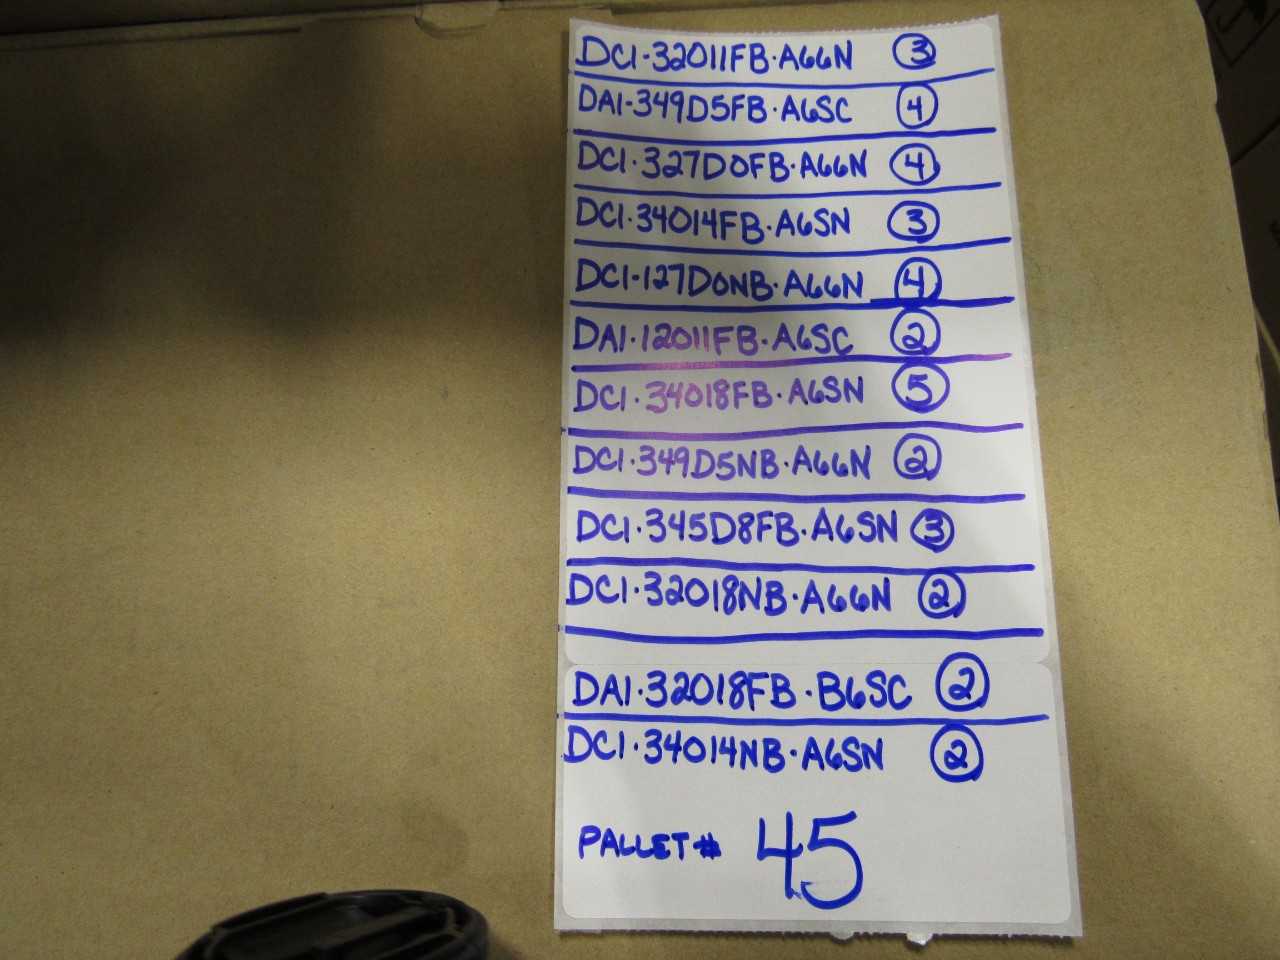 DCI-32011FB-A66N 3
DAI-349D5FB-A6SC 4
DCI-327D0FB-A66N 4
DCI-34014FB-A6SN 3
DCI-127D0NB-A66N 4
DAI-12011FB-A6SC 2
DCI-34018FB-A6SN 5
DCI-349D5NB-A66N 2
DCI-345D8FB-A6SN 3
DCI-32018NB-A66N 2
DAI-32018FB-B6SC 2
DCI-34014NB-A6SN 2
PALLET# 45